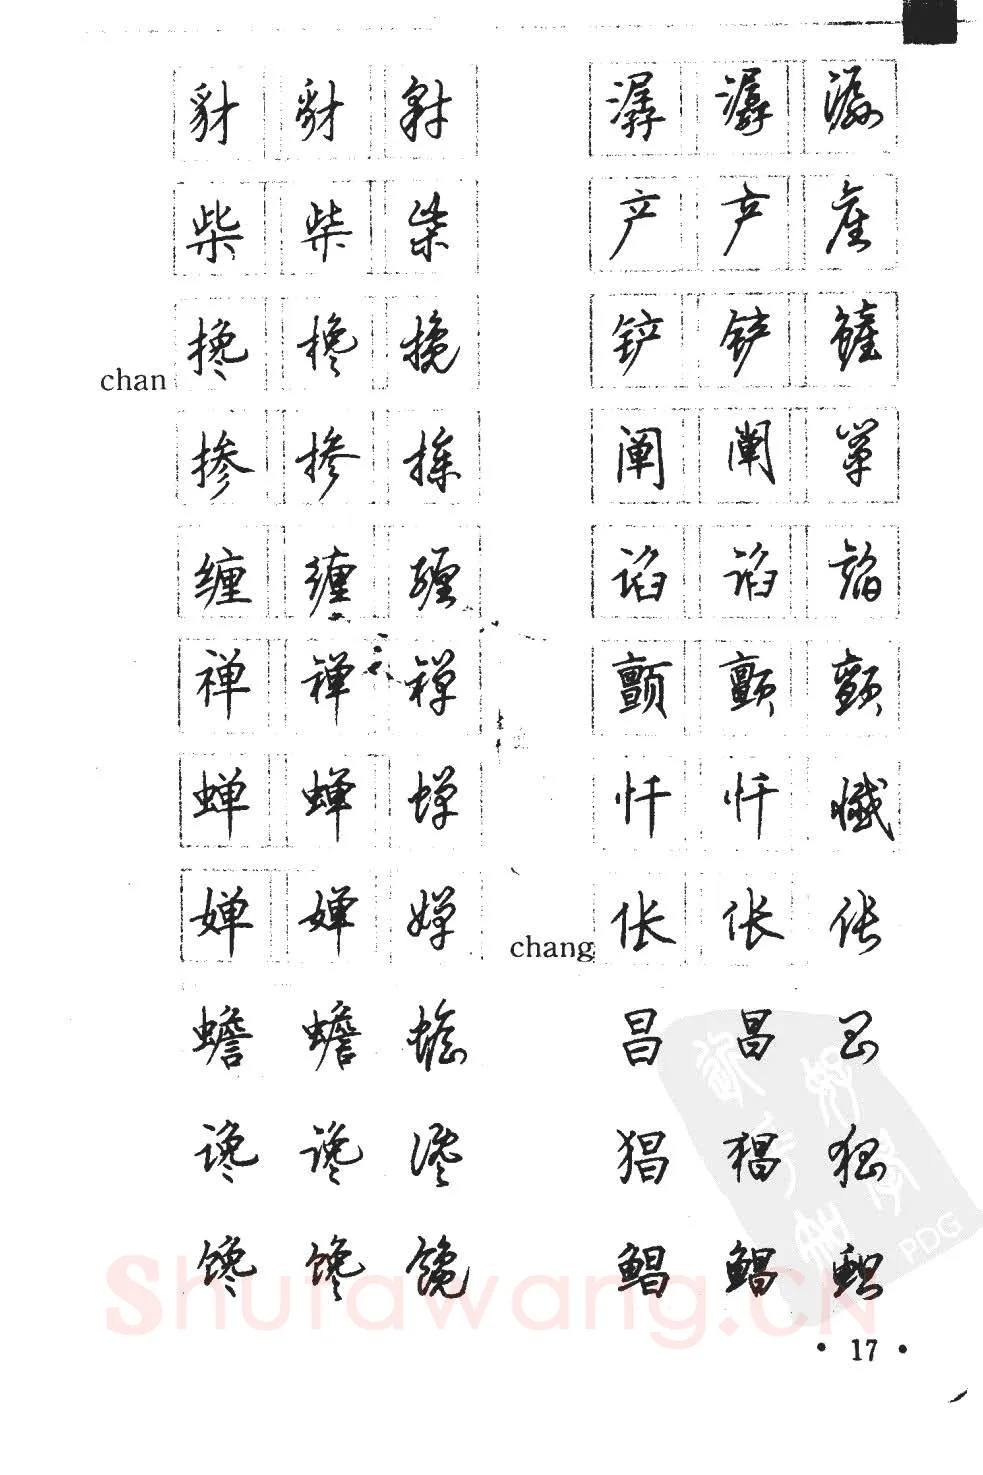 豺 豺 豺
柴 柴 柴
chan 搀 搀 搀
掺 掺 掺
缠 缠 缠
禅 禅 禅
蝉 蝉 蝉
婵 婵 婵
蟾 蟾 蟾
谗 谗 谗
馋 馋 馋
潺 潺 潺
产 产 產
铲 铲 鏟
阐 阐 阐
谄 谄 谄
颤 颤 颤
忏 忏 懺
chang 伥 伥 伥
昌 昌 昌
猖 猖 猖
鲳 鲳 鲳
Shufawang.CN
PDG
· 17 ·